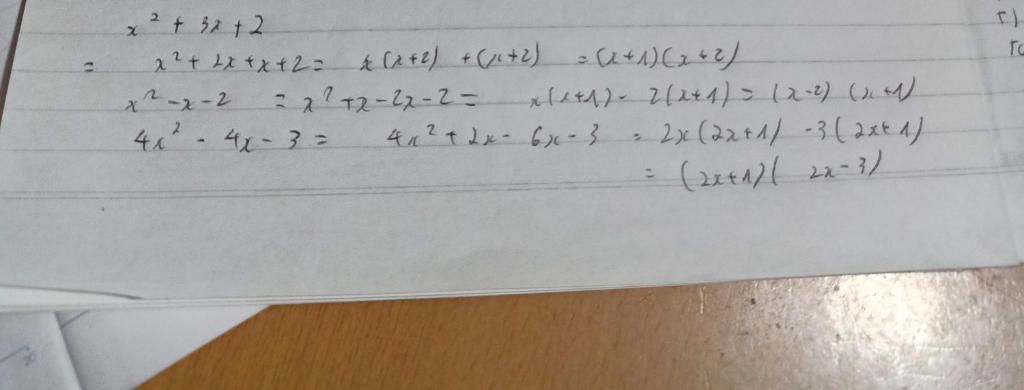 x² + 3x + 2
= x² + 2x + x + 2 = x(x+2) + (x+2) = (x+1)(x+2)
x² - x - 2 = x² + x - 2x - 2 = x(x+1) - 2(x+1) = (x-2)(x+1)
4x² - 4x - 3 = 4x² + 2x - 6x - 3 = 2x(2x+1) - 3(2x+1)
= (2x+1)(2x-3)